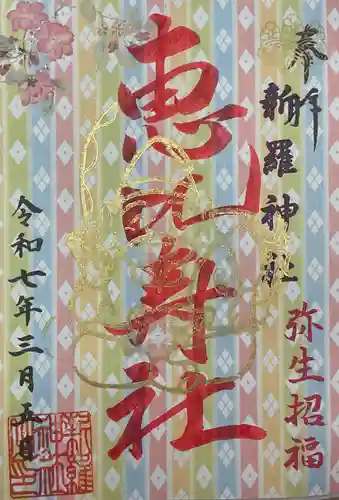 奉拝
新羅神社
弥生招福
恵比寿社
令和七年三月五日
新羅
神社